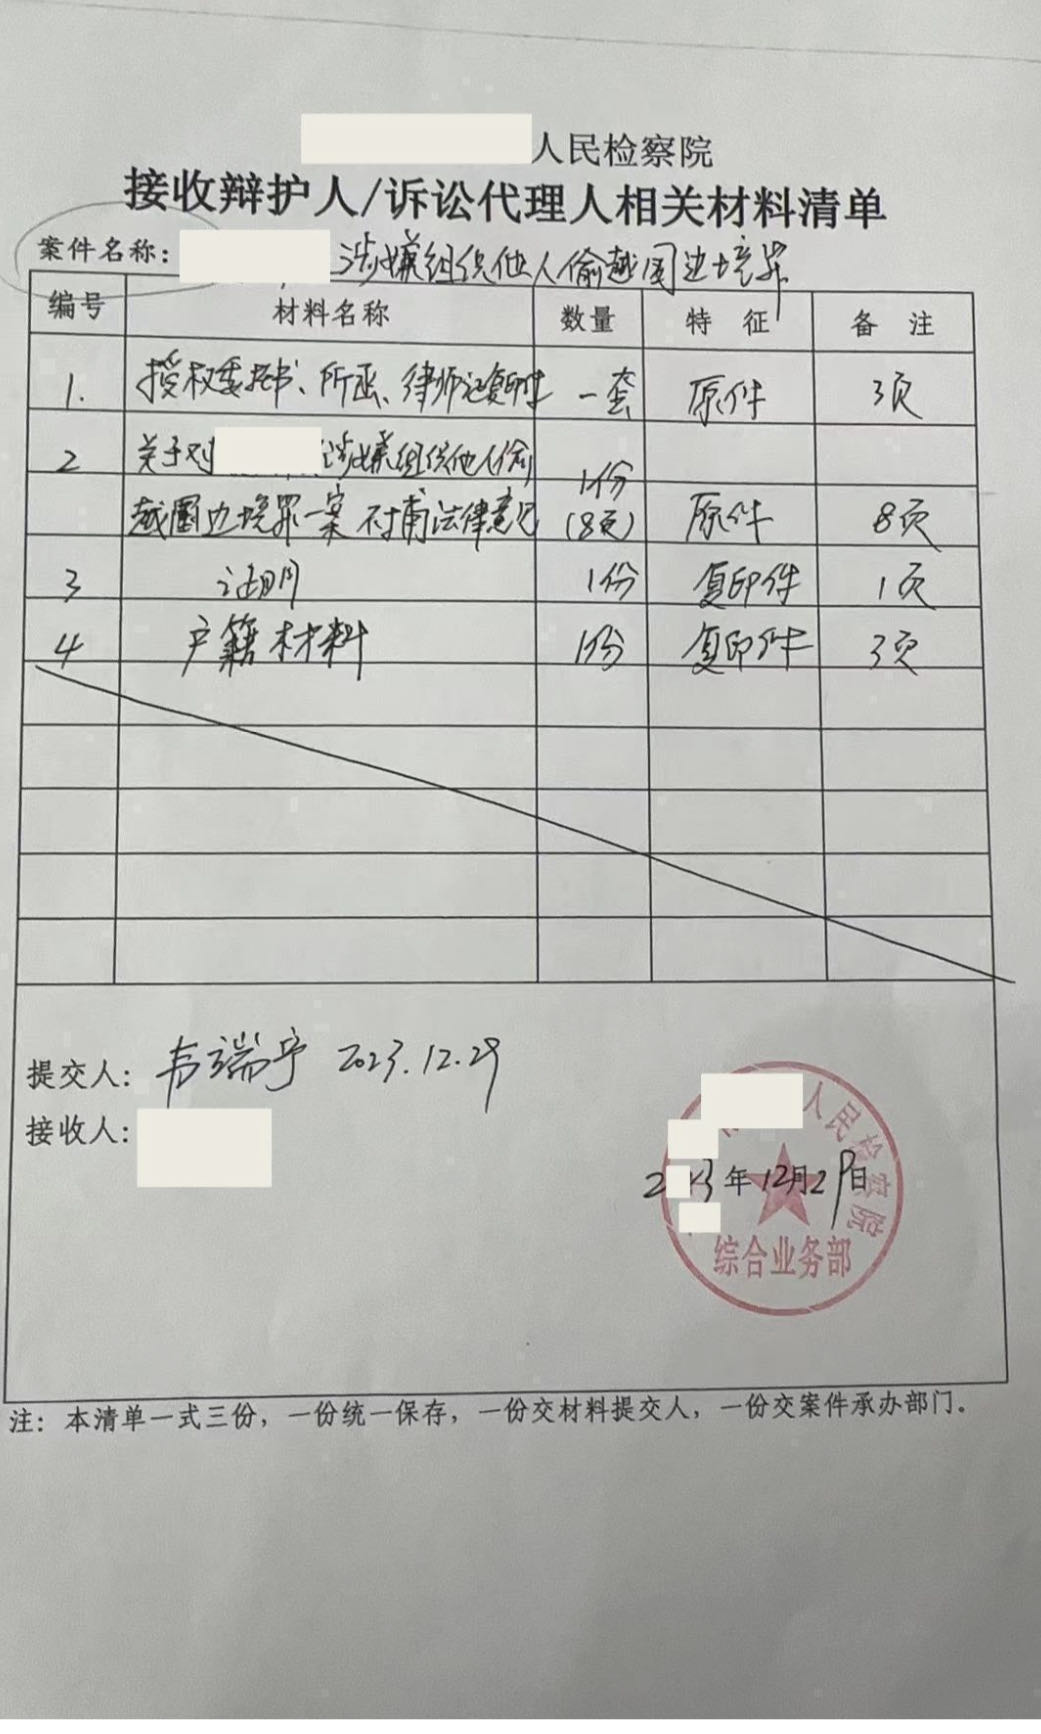 人民检察院
接收辩护人/诉讼代理人相关材料清单
案件名称： 涉嫌组织他人偷越国边境罪
编号 材料名称 数量 特 征 备 注
1. 授权委托书、所函、律师证复印件 一套 原件 3页
2 关于对 涉嫌组织他人偷 1份
越国边境罪一案不捕法律意见 (8页) 原件 8页
3 证明 1份 复印件 1页
4 户籍材料 1份 复印件 3页
提交人： 韦端宇 2023.12.29
接收人：
人民检察院
2 3年12月29日
综合业务部
注：本清单一式三份，一份统一保存，一份交材料提交人，一份交案件承办部门。